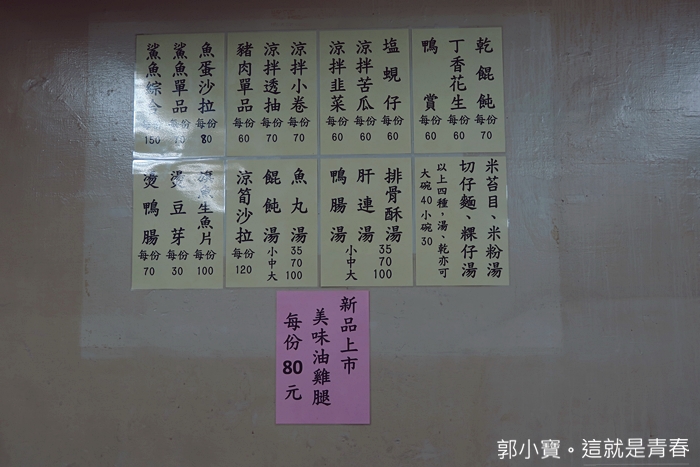 乾餛飩 每份 70
丁香花生 每份 60
鴨賞 每份 60
塩蜆仔 每份 60
涼拌苦瓜 每份 60
涼拌韭菜 每份 60
涼拌小卷 每份 70
涼拌透抽 每份 70
豬肉單品 每份 60
魚蛋沙拉 每份 80
鯊魚單品 每份 70
鯊魚綜合 每份 150
米苔目、米粉湯
切仔麵、粿仔湯
以上四種，湯、乾亦可
大碗 40 小碗 30
排骨酥湯
肝連湯
鴨腸湯
小 35
中 70
大 100
魚丸湯
餛飩湯
小 35
中 70
大 100
涼筍沙拉 每份 120
旗魚生魚片 每份 100
燙豆芽 每份 30
燙鴨腸 每份 70
新品上市
美味油雞腿
每份 80 元
郭小寶。這就是青春